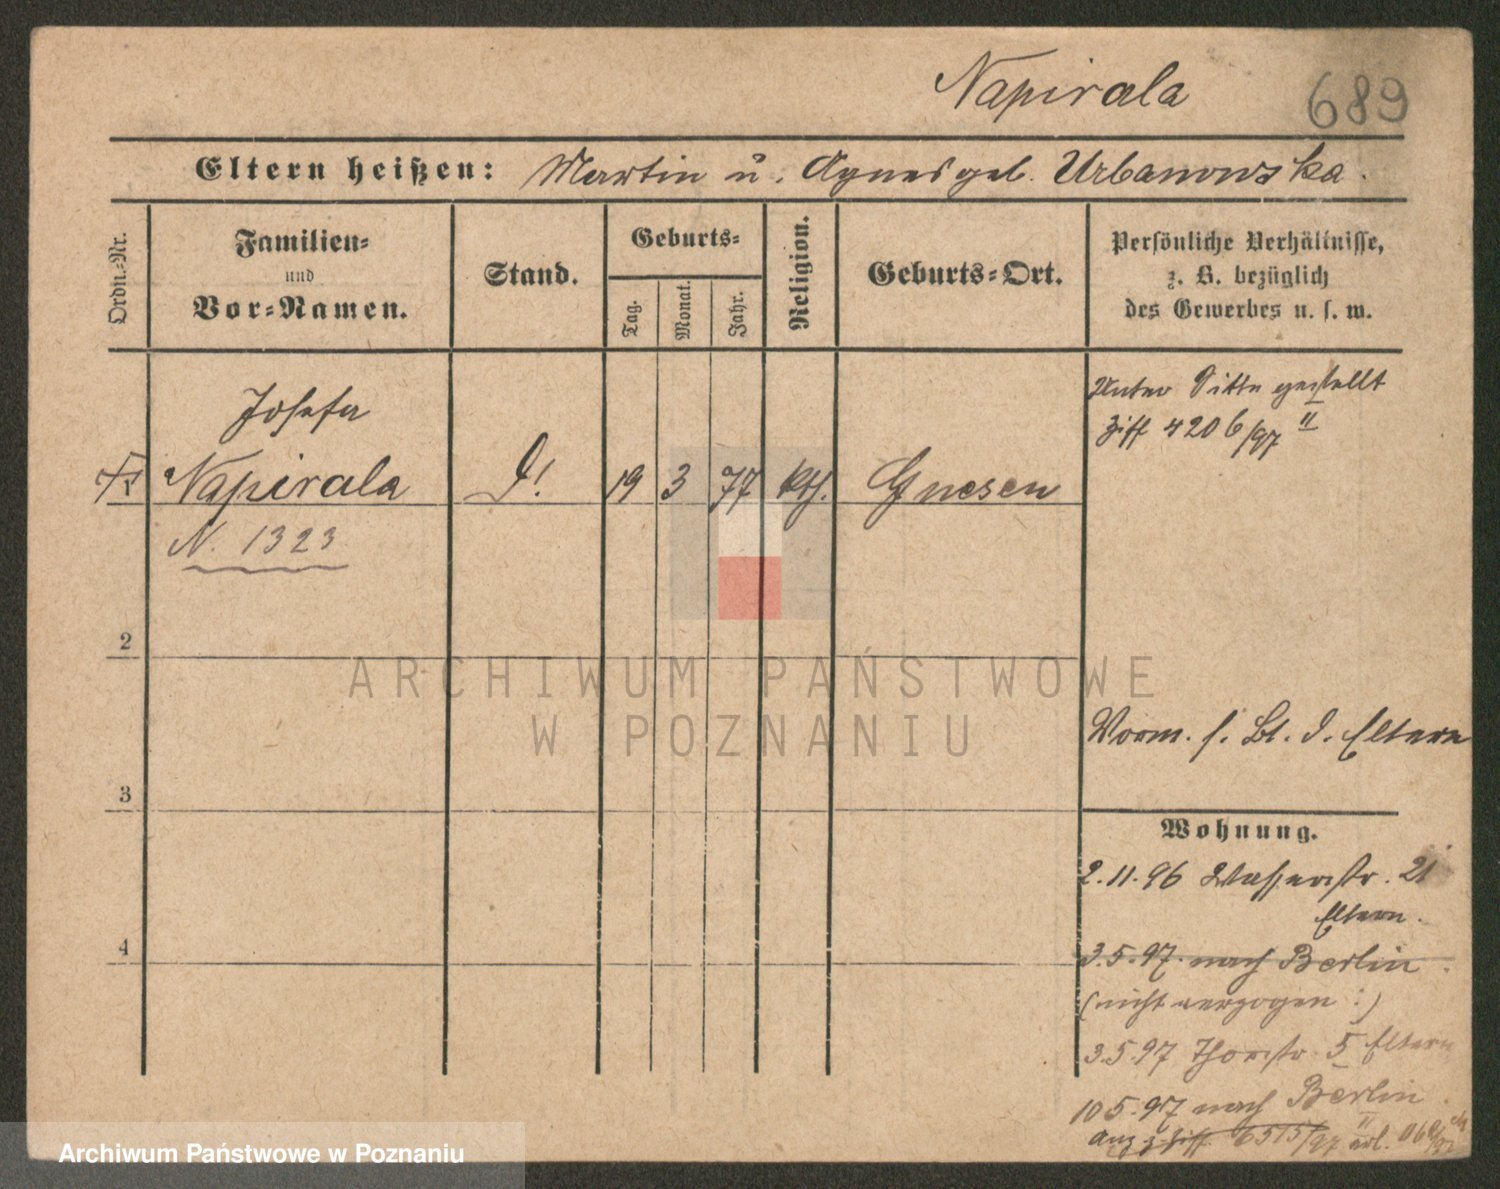 Napirala 689
Eltern heißen: Martin u. Agnes geb. Urbanowska.
Ordn.-Nr.
Familien-
und
Vor-Namen.
Stand.
Geburts-
Tag.
Monat.
Jahr.
Religion.
Geburts-Ort.
Persönliche Verhältnisse,
z. B. bezüglich
des Gewerbes u. s. w.
Josefa
Napirala D! 19 3 77 kth. Gnesen
N. 1323
Unter Sitte gestellt
Ziff 4206/97 II
2
3
4
Vorm. s. Bl. d. Eltern
Wohnung.
2.11.96 Wasserstr. 21
Eltern.
3.5.97. nach Berlin.
(nicht verzogen :)
3.5.97 Thorstr. 5 Eltern
10 5.97 nach Berlin.
Anz z. Ziff. 6515/97
ARCHIWUM PAŃSTWOWE
W POZNANIU
Archiwum Państwowe w Poznaniu